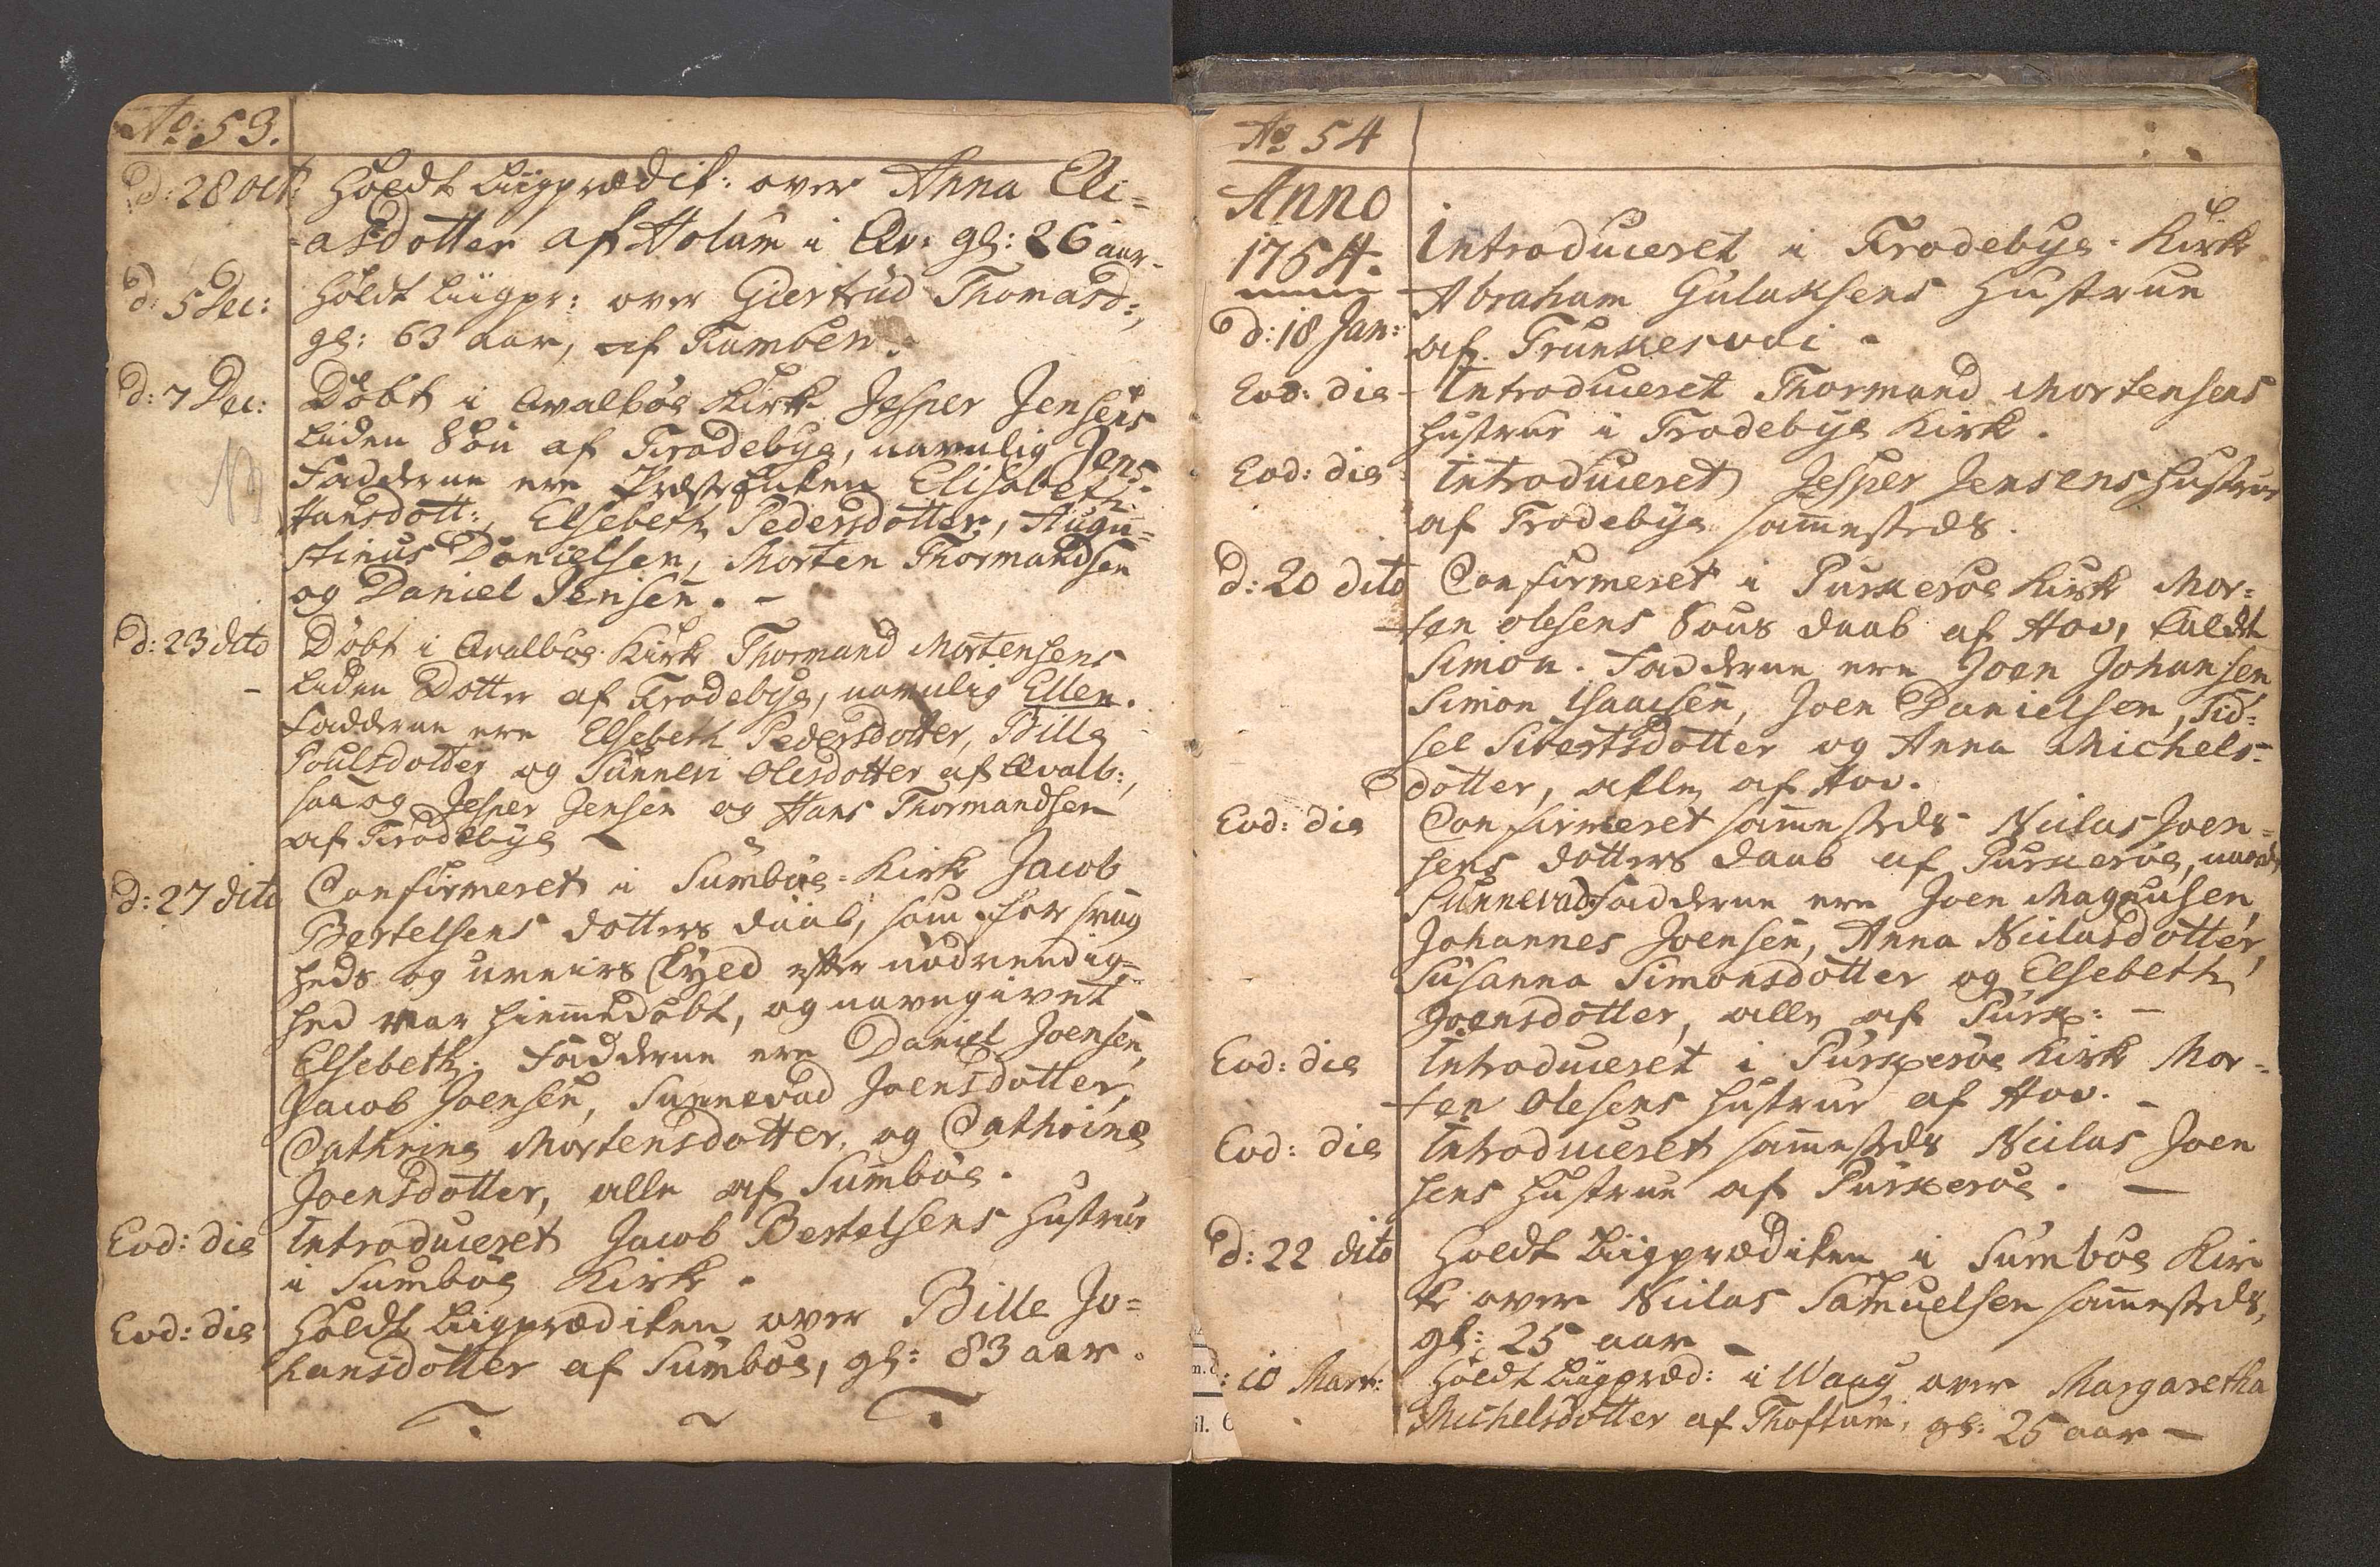 Ao: 53.
d: 28 Oct: Holdt Liigprædik: over Anna Eli=
asdotter af Holum i Qv: gl: 26 aar.
d: 5 Dec: Holdt Liigpr: over Giertrud Thomasd:,
gl: 63 aar, af Famben.
d: 7 Dec: Döbt i Qvalböe Kirk Jesper Jensens
liden Sön af Frodebye, navnlig Jens.
NB Fadderne ere Elisabeth
Hansdott:, Elsebeth Pedersdotter, Augu=
stinus Danielsen, Morten Thormandsen
og Daniel Jensen. -
d: 23 dito Döbt i Qvalböe Kirk Thormand Mortensens
liden Dotter af Frodebye, navnlig Ellen.
Fadderne ere Elsebeth Pedersdotter, Bille
Poulsdotter og Sunnevi Olesdotter af Qvalb:,
saa og Jesper Jensen og Hans Thormandsen
af Frodebye
d: 27 dito Confirmeret i Sumböe-Kirk Jacob
Bertelsens dotters daab, som for svag
heds og uveirs skyld efter nödvendig=
hed var hiemmedöbt, og navngivet
Elsebeth. Fadderne ere Daniel Joensen,
Jacob Joensen, Sunnevad Joensdotter,
Cathrina Mortensdotter, og Cathrina
Joensdotter, alle af Sumböe.
Eod: die Introduceret Jacob Bertelsens Hustrue
i Sumböe Kirk.
Eod: die Holdt Liigprædiken over Bille Jo=
hansdotter af Sumböe, gl: 83 aar.
Ao 54
Anno
1754.
d: 18 Jan: Introduceret i Frodebye-Kirk
Abraham Gulaksens Hustrue
af Trunkesvai.
Eod: die Introduceret Thormand Mortensens
Hustrue i Frodebye Kirk.
Eod: die Introduceret Jesper Jensens Hustrue
af Frodebye sammesteds.
d: 20 dito Confirmeret i Purkeröe Kirk Mor=
ten Olesens Söns daab af Hov, kaldt
Simon. Fadderne ere Joen Johansen
Simon Isaacsen, Joen Danielsen, Sid=
sel Sivertsdotter og Anna Michels=
dotter, alle af Hov.
Eod: die Confirmeret sammesteds Niclas Joen=
sens dotters daab af Purkeröe, navnl:
Sunnevad. Fadderne ere Joen Magnusen,
Johannes Joensen, Anna Niclasdotter,
Susanna Simonsdotter og Elsebeth
Joensdotter, alle af Purk: -
Eod: die Introduceret i Purkeröe Kirk Mor=
ten Olesens Hustrue af Hov. -
Eod: die Introduceret sammesteds Niclas Joen
sens Hustrue af Purkeröe. -
d: 22 dito Holdt Liigprædiken i Sumböe Kir
ke over Niclas Samuelsen sammesteds,
gl: 25 aar
: 10 Mart: Holdt Liigpræd: i Waag over Margaretha
Michelsdotter af Thoftum, gl: 25 aar -